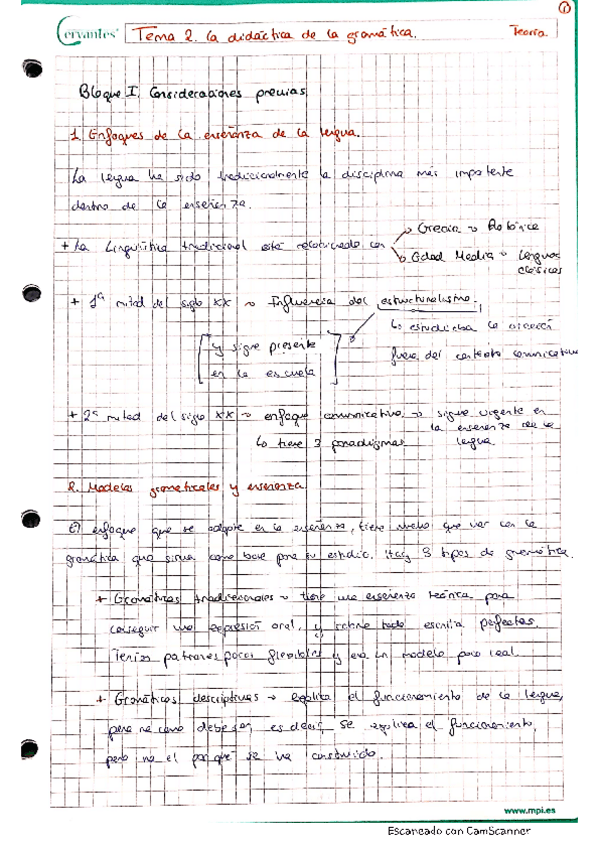 1
Cervantes Tema 2. La didáctica de la gramática. Teoría
Bloque I. Consideraciones previas
1. Enfoques de la enseñanza de la lengua.
La lengua ha sido tradicionalmente la disciplina más importante
dentro de la enseñanza.
+ La Lingüística tradicional está relacionada con
Grecia → Retórica
Edad Media → Lenguas
clásicas
+ 1ª mitad del siglo XX → Influencia del estructuralismo.
↳ estudiaba la
fuera del contexto comunicativo
y sigue presente
en la escuela
+ 2ª mitad del siglo XX → enfoque comunicativo → sigue vigente en
la enseñanza de la
lengua
↳ tiene 3 paradigmas
2. Modelos gramaticales y enseñanza
El enfoque que se adopte en la enseñanza, tiene mucho que ver con la
gramática que sirva como base para su estudio. Hay 3 tipos de gramática.
+ Gramáticas tradicionales → tiene una enseñanza teórica para
conseguir una expresión oral, y sobre todo escrita perfectas.
Tenías patrones pocos flexibles y era un modelo poco real.
+ Gramáticas descriptivas → explica el funcionamiento de la lengua,
pero no como debe ser, es decir, se explica el funcionamiento,
pero no el por qué se ha construido.
www.mpi.es
Escaneado con CamScanner